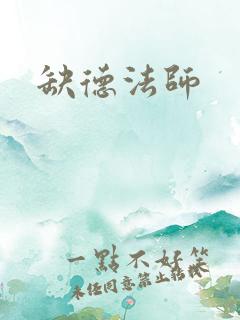 缺德法師
一點不好笑
未經同意禁止轉載